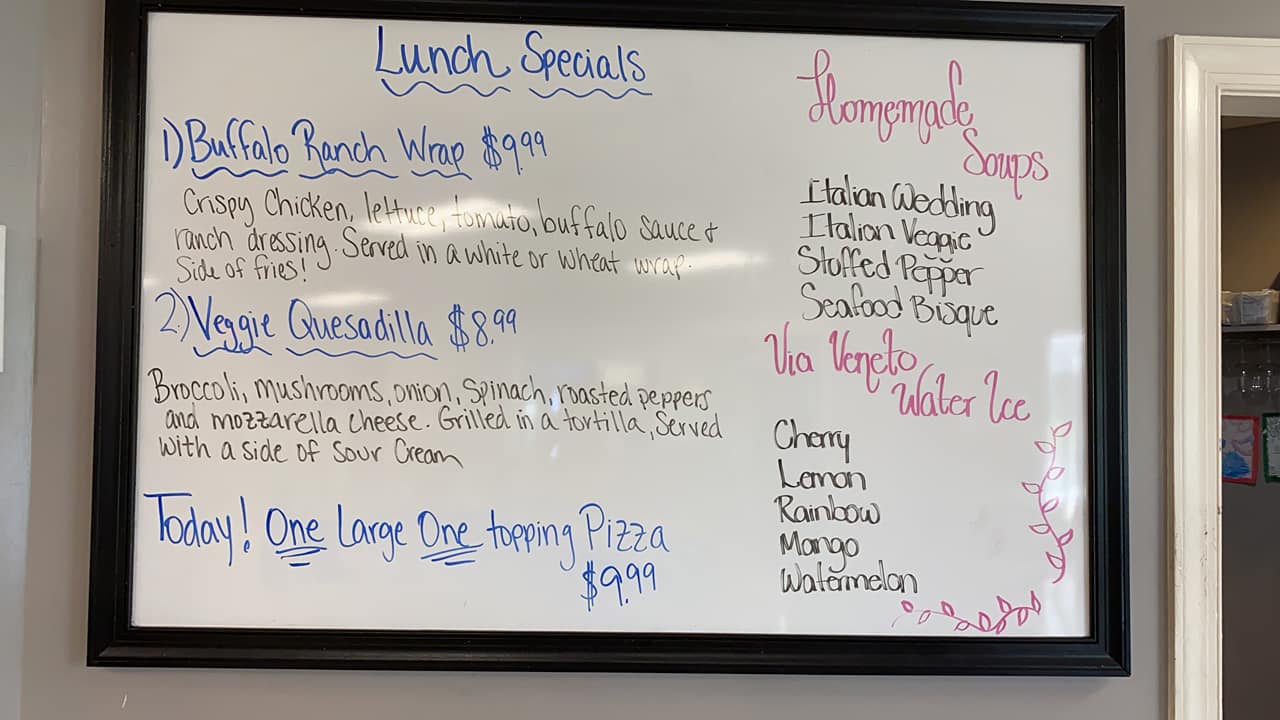 Lunch Specials
1) Buffalo Ranch Wrap $9.99
Crispy Chicken, lettuce, tomato, buffalo sauce &
ranch dressing. Served in a white or wheat wrap.
Side of fries!
2) Veggie Quesadilla $8.99
Broccoli, mushrooms, onion, Spinach, roasted peppers
and mozzarella cheese. Grilled in a tortilla, Served
with a side of Sour Cream
Today! One Large One topping Pizza
$9.99
Homemade
Soups
Italian Wedding
Italian Veggie
Stuffed Pepper
Seafood Bisque
Via Veneto
Water Ice
Cherry
Lemon
Rainbow
Mango
Watermelon